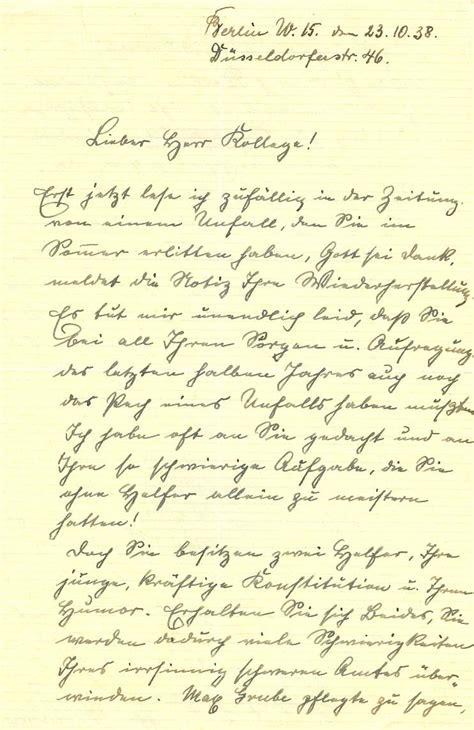 Berlin W. 15. den 23.10.38.
Düsseldorferstr. 46.
Lieber Herr Kollege!
Erst jetzt lese ich zufällig in der Zeitung
von einem Unfall, den Sie im
Sommer erlitten haben, Gott sei Dank,
meldet die Notiz Ihre Wiederherstellung.
Es tut mir unendlich leid, daß Sie
bei all Ihren Sorgen u. Aufregung.
des letzten halben Jahres auch noch
das Pech eines Unfalls haben mußten
Ich habe oft an Sie gedacht und an
Ihre so schwierige Aufgabe, die Sie
ohne Helfer allein zu meistern
hatten!
Doch Sie besitzen zwei Helfer, Ihre
junge, kräftige Konstitution u. Ihren
Humor. Erhalten Sie sich Beides, Sie
werden dadurch viele Schwierigkeiten
Ihres irrsinnig schweren Amtes über-
winden. Max Grube pflegte zu sagen,